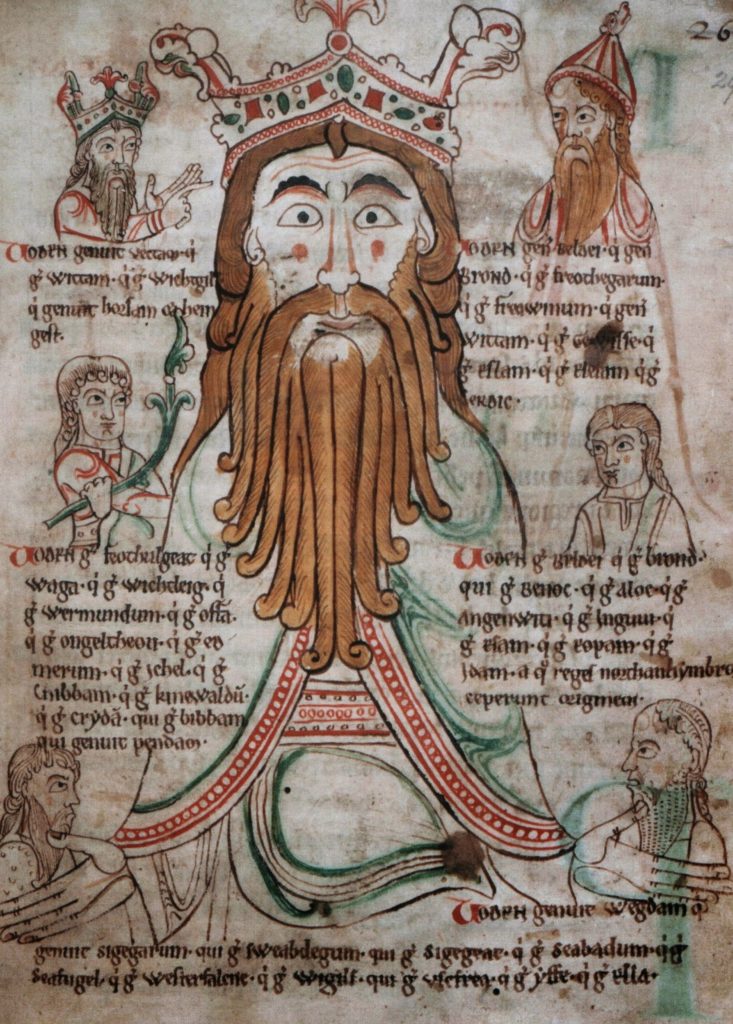 26
Uoden genuit vectam · q̇
g̃ wittam · q̇ g̃ wichtgil
q̇ genuit horsam & hen
gest ·
Uoden geñ belder · q̇ geñ
Brond · q̇ g̃ freothegarum ·
q̇ g̃ freawinum · q̇ geñ
wittam · q̇ g̃ gewisse · q̇
g̃ eslam · q̇ g̃ elesam q̇ g̃
Cerdic ·
Uoden g̃ feothulgeat q̇ g̃
waga · q̇ g̃ wichdeig · q̇
g̃ wermundum · q̇ g̃ offã ·
q̇ g̃ ongeltheou · q̇ g̃ eo
merum · q̇ g̃ ichel · q̇ g̃
Cnibbam · q̇ g̃ kinewaldũ ·
q̇ g̃ crydã · qui g̃ bibbam
qui genuit pendam ·
Uoden g̃ belder q̇ g̃ brond ·
qui g̃ Benoc · q̇ g̃ aloc · q̇ g̃
Angenwiti · q̇ g̃ inguui · q̇
g̃ esam · q̇ g̃ eopam · q̇ g̃
idam · a q̇ reges northanhymbro
ceperunt originem ·
Uoden genuit wegdam q̇
genuit sigegarum · qui g̃ sweabdegum · qui g̃ sigegeat · q̇ g̃ seabadum · q̇ g̃
seafugel · q̇ g̃ westerfalcne · q̇ g̃ wigils · qui g̃ uscfrea · q̇ g̃ yffe · q̇ g̃ ella ·